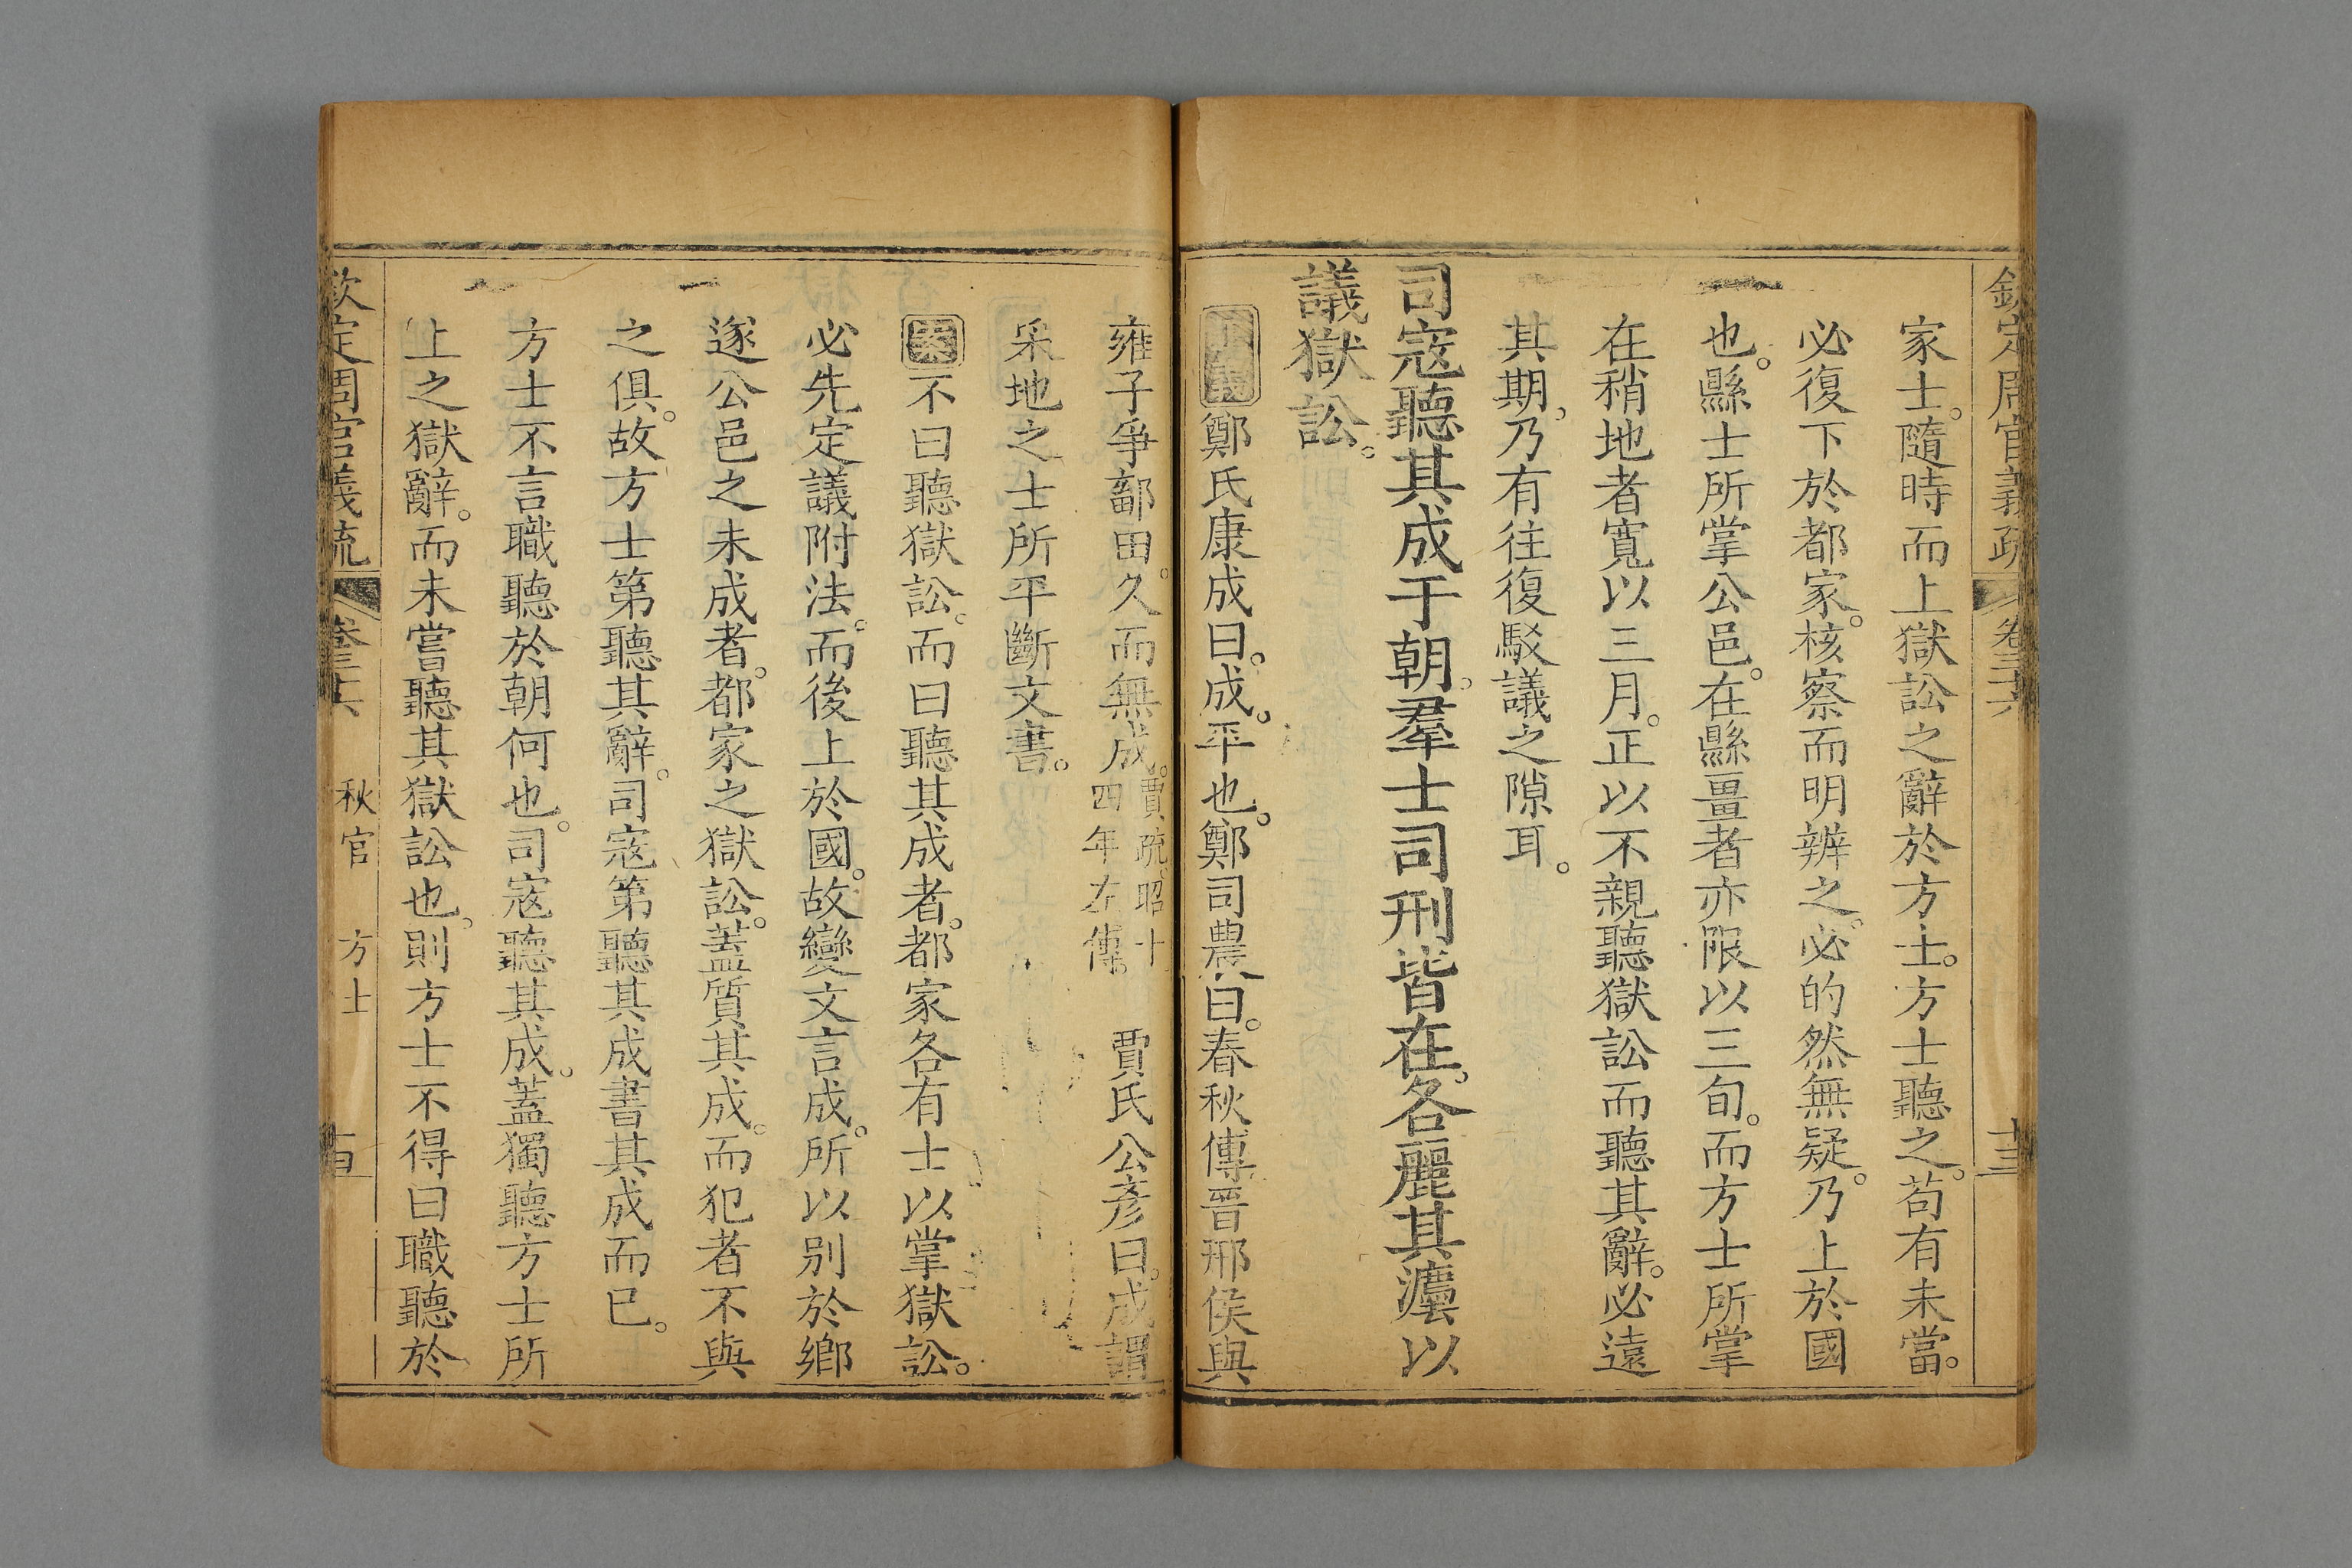 欽定周官義疏 卷三十六 十三
家士。隨時而上獄訟之辭於方士。方士聽之。苟有未當。
必復下於都家。核察而明辨之。必的然無疑。乃上於國
也。縣士所掌公邑。在縣畺者亦限以三旬。而方士所掌
在稍地者寬以三月。正以不親聽獄訟而聽其辭。必遠
其期。乃有往復駁議之隙耳。
司寇聽其成于朝。羣士司刑皆在。各麗其灋以
議獄訟。
正義鄭氏康成曰。成。平也。鄭司農曰。春秋傳晉邢侯與
雍子爭鄐田。久而無成。賈疏。昭十四年左傳。 賈氏公彥曰。成謂
采地之士所平斷文書。
案不曰聽獄訟。而曰聽其成者。都家各有士以掌獄訟。
必先定議附法。而後上於國。故變文言成。所以別於鄉
遂公邑之未成者。都家之獄訟。蓋質其成。而犯者不與
之俱。故方士第聽其辭。司寇第聽其成書其成而已。
方士不言職聽於朝何也。司寇聽其成。蓋獨聽方士所
上之獄辭。而未嘗聽其獄訟也。則方士不得曰職聽於
欽定周官義疏 卷三十六 秋官 方士